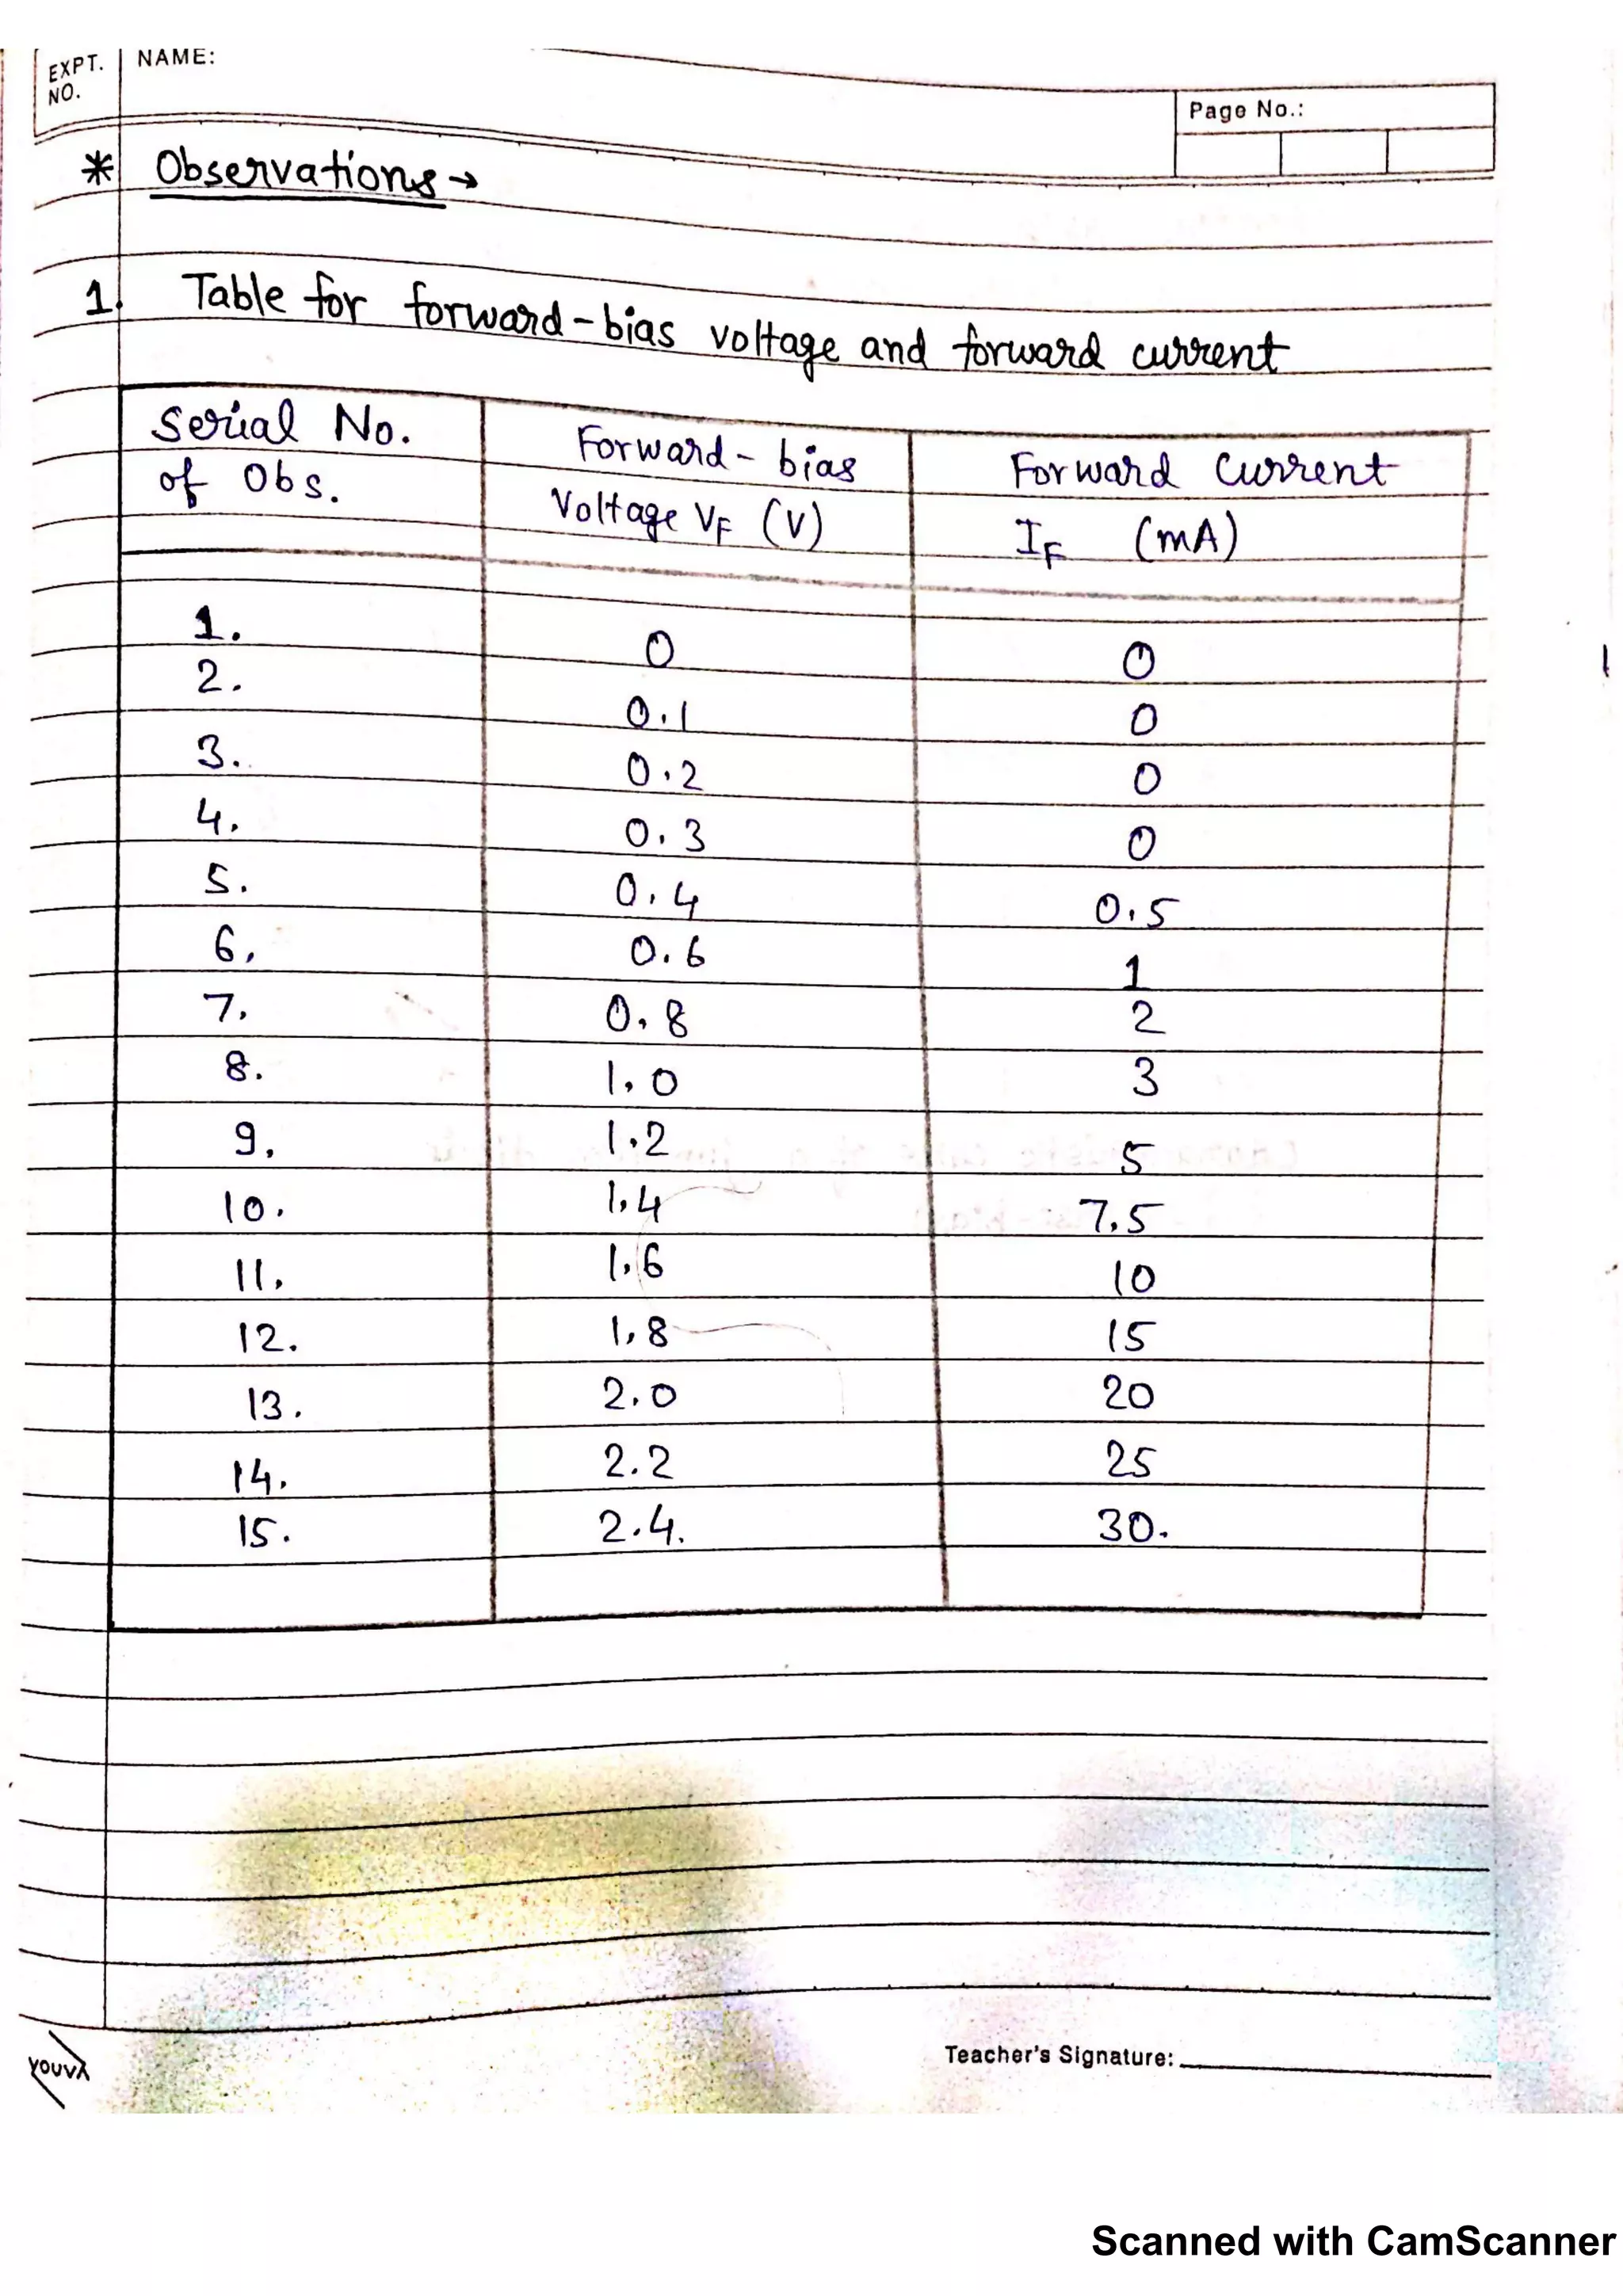 EXPT. NO. NAME:
Page No.:
* Observations →
1. Table for forward-bias voltage and forward current
Serial No. of Obs. Forward-bias Voltage VF (V) Forward Current IF (mA)
1. 0 0
2. 0.1 0
3. 0.2 0
4. 0.3 0
5. 0.4 0.5
6. 0.6 1
7. 0.8 2
8. 1.0 3
9. 1.2 5
10. 1.4 7.5
11. 1.6 10
12. 1.8 15
13. 2.0 20
14. 2.2 25
15. 2.4. 30.
Teacher's Signature:
youva
Scanned with CamScanner